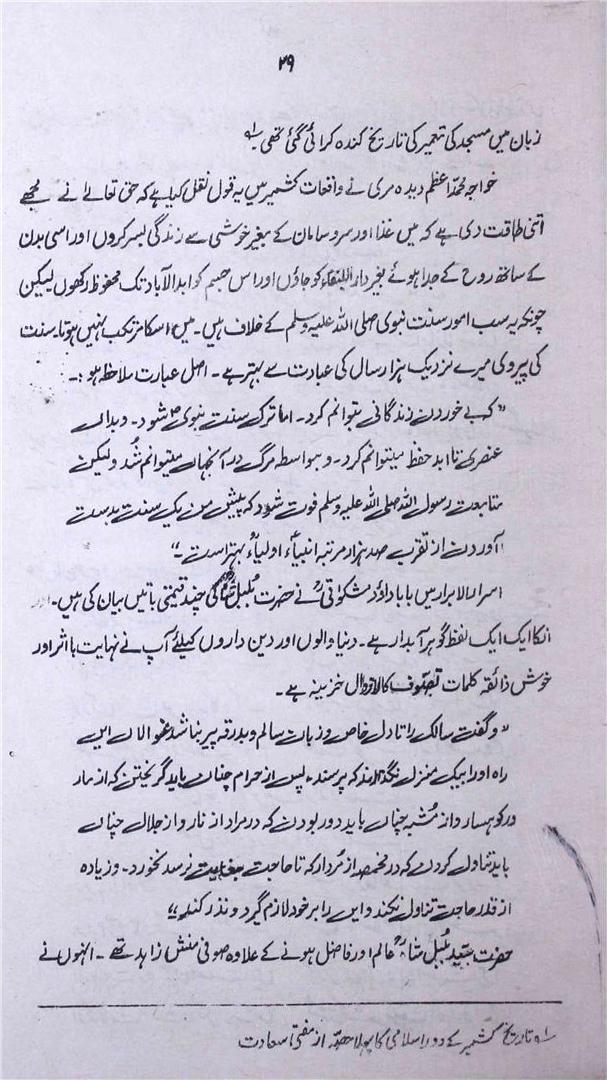 ۲۹
زبان میں مسجد کی تعمیر کی تاریخ کندہ کرائی گئی تھی۔ ۱؎
خواجہ محمد اعظم دیدہ مری نے واقعات کشمیر میں یہ قول نقل کیا ہے کہ حق تعالےٰ نے مجھے
اتنی طاقت دی ہے کہ میں غذا اور سر و سامان کے بغیر خوشی سے زندگی بسر کروں اور اسی بدن
کے ساتھ روح کے جدا ہوئے بغیر دار البقاء کو جاؤں اور اس جسم کو ابد الآباد تک محفوظ رکھوں لیکن
چونکہ یہ سب امور سنت نبوی صلی اللہ علیہ وسلم کے خلاف ہیں۔ میں اسکا مرتکب نہیں ہوتا۔ سنت
کی پیروی میرے نزدیک ہزار سال کی عبادت سے بہتر ہے۔ اصل عبارت ملاحظہ ہو:۔
”کہ بے خوردن زندگانی بتوانم کرد۔ اما ترک سنت نبوی ؐ شود۔ و بدان
عنصری تا ابد حفظ میتوانم کرد۔ و بواسطہ مرگ در آنجہاں میتوانم شُد ولیکن
متابعت رسول اللہ صلی اللہ علیہ وسلم فوت شود کہ پیش من یک سنت بدست
آوردن از تقرب صد ہزار مرتبہ انبیاءؑ اولیاءؒ بہتر است۔“
اسرار الابرار میں بابا داؤد مشکوٰتی ؒ نے حضرت بُلبل شاہؒ کی چند قیمتی باتیں بیان کی ہیں۔ اور
انکا ایک ایک لفظ گوہر آبدار ہے۔ دنیا والوں اور دین داروں کیلئے آپ نے نہایت با اثر اور
خوش ذائقہ کلمات تصوف کا لازوال خزینہ ہے۔
”وگفت سالک را تا دل خاص و زبان سالم و بدرقہ پیر نباشد غوالان این
راہ او را بیک منزل نگذارند کہ پرسند، پس از حرام چناں باید گریختن کہ از مار
در کوہسار و از مُشبہ چناں باید دور بودن کہ در مراد از نار و از حلال چناں
باید تناول کردن کہ در مخمصہ از مُردار کہ تا حاجت بغایت نرسد نخورد۔ و زیادہ
از قدر حاجت تناول نکند و این را بر خود لازم گیرد و نذر کند“
حضرت سید بُلبل شاہ ؒ عالم اور فاضل ہونے کے علاوہ صوفی منش زاہد تھے۔ انہوں نے
۱؎ تاریخ کشمیر کے دور اسلامی کا پہلا حصّہ از مفتی سعادت